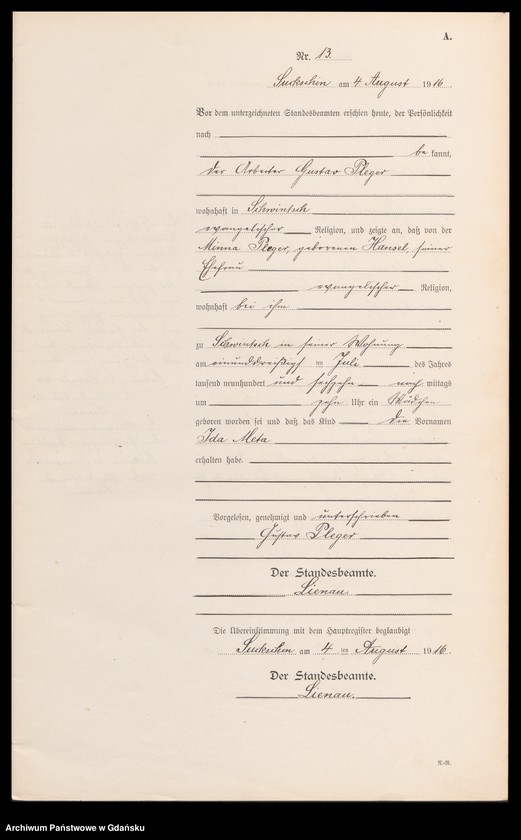 A.
Nr. 13.
Suckschin am 4 August 1916.
Vor dem unterzeichneten Standesbeamten erschien heute, der Persönlichkeit
nach
be kannt,
der Arbeiter Gustav Pleger
wohnhaft in Schwintsch
evangelischer Religion, und zeigte an, daß von der
Minna Pleger, geborenen Hansel, seiner
Ehefrau
evangelischer Religion,
wohnhaft bei ihm
zu Schwintsch in seiner Wohnung
am einunddreißigsten Juli des Jahres
tausend neunhundert und sechzehn nach mittags
um zehn Uhr ein Mädchen
geboren worden sei und daß das Kind die Vornamen
Ida Meta
erhalten habe.
Vorgelesen, genehmigt und unterschrieben
Gustav Pleger
Der Standesbeamte.
Lienau.
Die Übereinstimmung mit dem Hauptregister beglaubigt
Suckschin am 4 ten August 1916.
Der Standesbeamte.
Lienau.
Archiwum Państwowe w Gdańsku